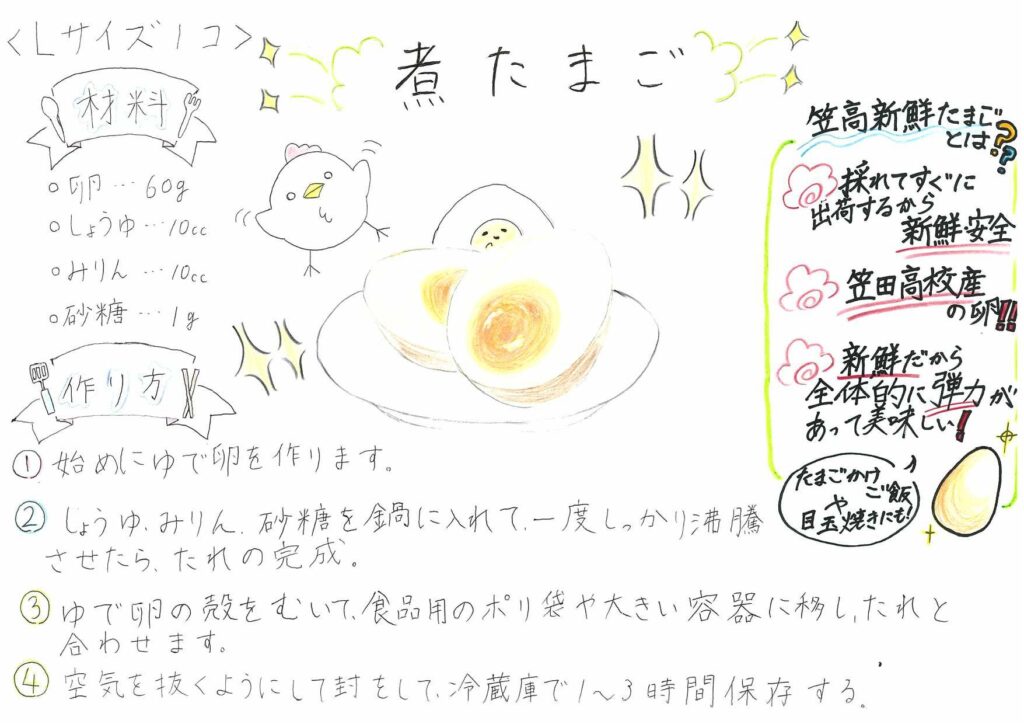 <Lサイズ1コ>
煮たまご
材料
○卵…60g
○しょうゆ…10cc
○みりん…10cc
○砂糖…1g
作り方
①始めにゆで卵を作ります。
②しょうゆ、みりん、砂糖を鍋に入れて、一度しっかり沸騰
させたら、たれの完成。
③ゆで卵の殻をむいて、食品用のポリ袋や大きい容器に移し、たれと
合わせます。
④空気を抜くようにして封をして、冷蔵庫で1~3時間保存する。
笠高新鮮たまご
とは??
採れてすぐに
出荷するから
新鮮・安全
笠田高校産
の卵!!
新鮮だから
全体的に弾力が
あって美味しい!
たまごかけ
ご飯
や
目玉焼きにも!